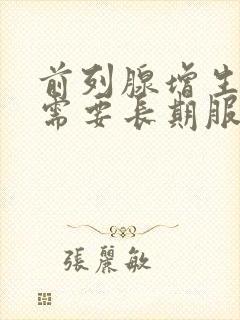 前列腺增生
需要长期服
張麗敏